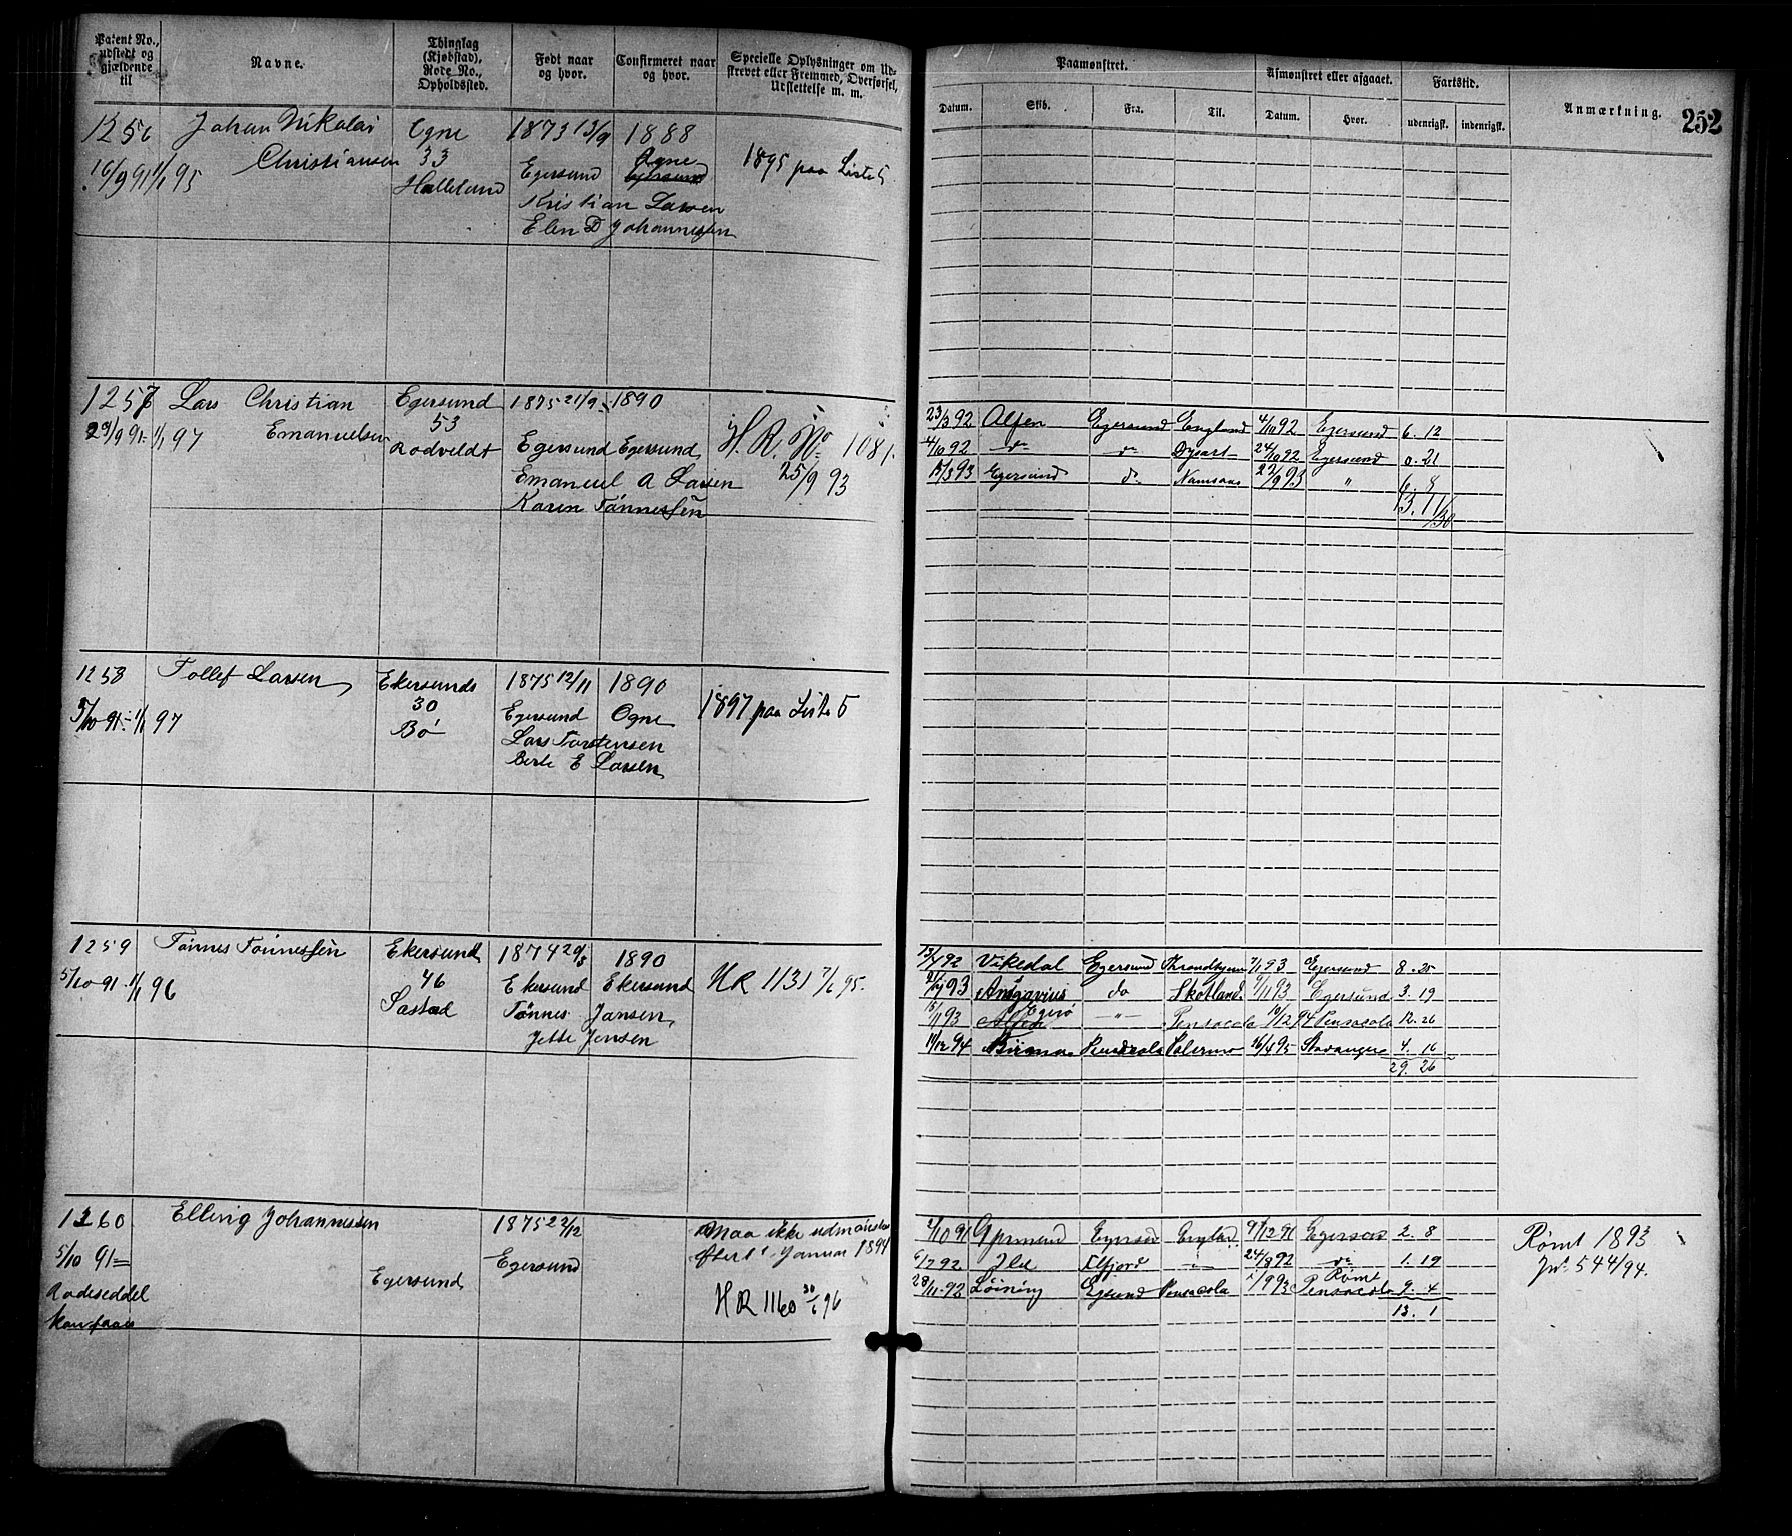 Patent No., udstedt og gjældende til
Navne.
Thinglag (Kjøbstad), Rode No., Opholdssted.
Født naar og hvor.
Confirmeret naar og hvor.
Specielle Oplysninger om Udskrevet eller Fremmed, Overførsel, Udslettelse m. m.
Paamønstret.
Datum.
Skib.
Fra.
Til.
Afmønstret eller afgaaet.
Datum.
Hvor.
Fartstid.
udenrigsk.
indenrigsk.
Anmærkning.
252
1256 Johan Nikolai Ogne 1873 13/9 1888
16/9 91 1/1 95 Christiansen 33 Egersund Ogne 1895 paa Liste 5
Hølleland
Kristian Larsen
Elen D Johannessen
1257 Lars Christian Egersund 1875 21/9 1890
29/9 91 = 1/1 97 Emanuelsen 53 Egersund Egersund H. R. No 1081.
Rodveldt
Emanuel A Larsen 25/9 93
Karen Tönnessen
23/3 92 Alfen Egersund England 4/10 92 Egersund 6. 12
4/10 92 do do Dysart 24/10 92 Egersund 0. 21
15/3 93 Egersund do Namsos 23/9 93 " 6. 8
13. 11/30
1258 Tollef Larsen Ekersunds 1875 12/11 1890
5/10 91 = 1/1 97 30 Egersund Ogne 1897 paa Liste 5
Bö
Lars Torstensen
Berte E Larsen
1259 Tönnes Tönnessen Ekersund 1874 29/8 1890
5/10 91 1/1 96 46 Ekersund Ekersund HR 1131 7/6 95.
Sæstad
Tönnes Jansen
Jette Jensen
13/4 92 Vikedal Egersund Throndhjem 7/1 93 Egersund 8. 25
93 Ansgarius do Skotland 1/11 93 Egersund 3. 19
Egerö
15/11 93 "- Pensacola 10/12 94 Pensacola 12. 26
11/12 94 Birma Pensacola Palermo 16/4 95 Stavanger 4. 16
29. 26
1260 Elling Johannessen 1875 22/12 Maa ikke udmönstres
5/10 91 = Egersund Egersund efter 1 Januar 1894
Rodeseddel HR 1160 30/6 96
kan faaes
2/10 91 Gjermund Egersund England 9/12 91 Egersund 2. 8
6/7 92 Ild Flfjord 24/8 92 do 1. 19
Rømt
28/11 92 Löining Egersund Pensacola 1/9 93 Pensacola 9. 4
13. 1
Rømt 1893
Jr. 544/94.